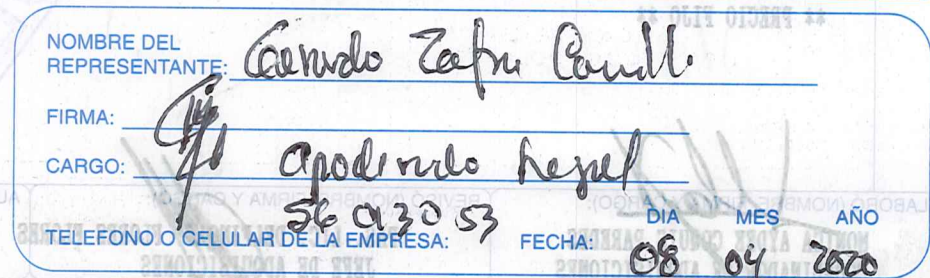 NOMBRE DEL
REPRESENTANTE: Gerardo Zafra Carrillo
FIRMA:
CARGO: apoderado legal
56 0130 53
TELEFONO O CELULAR DE LA EMPRESA: FECHA: DIA MES AÑO
08 04 2020